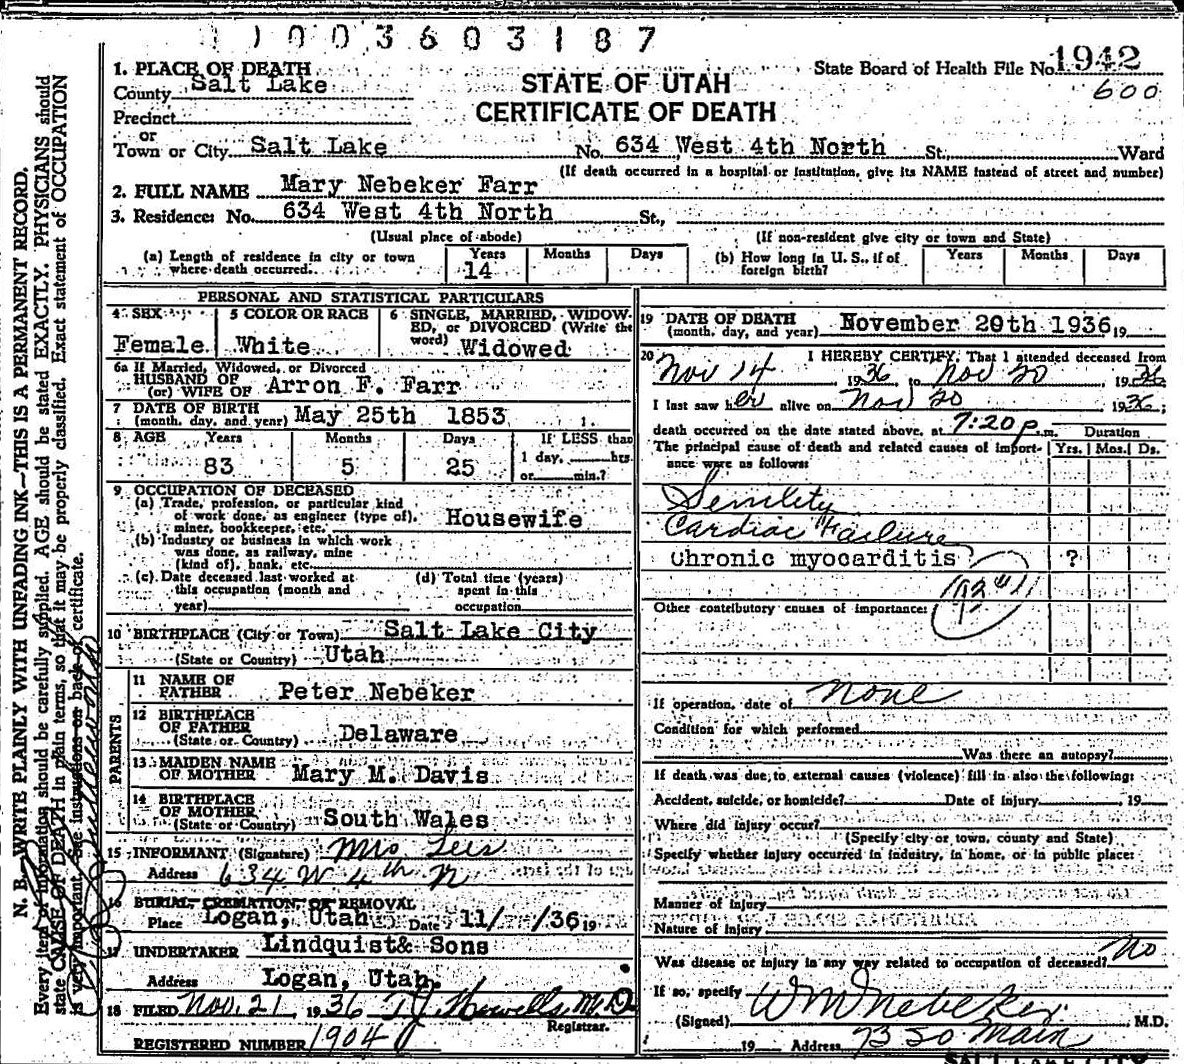 1003603187
1. PLACE OF DEATH
County Salt Lake
Precinct
or
Town or City Salt Lake No. 634 West 4th North St., Ward
STATE OF UTAH
CERTIFICATE OF DEATH
State Board of Health File No. 1942
600
(If death occurred in a hospital or institution, give its NAME instead of street and number)
2. FULL NAME Mary Nebeker Farr
3. Residence: No. 634 West 4th North St.,
(Usual place of abode) (If non-resident give city or town and State)
(a) Length of residence in city or town where death occurred. Years 14 Months Days
(b) How long in U. S., if of foreign birth? Years Months Days
PERSONAL AND STATISTICAL PARTICULARS
4 SEX Female
5 COLOR OR RACE White
6 SINGLE, MARRIED, WIDOWED, or DIVORCED (Write the word) Widowed
6a If Married, Widowed, or Divorced
HUSBAND OF
(or) WIFE OF Arron F. Farr
7 DATE OF BIRTH
(month, day, and year) May 25th 1853
8 AGE Years Months Days If LESS than
83 5 25 1 day, hrs.
or min.?
9 OCCUPATION OF DECEASED
(a) Trade, profession, or particular kind
of work done, as engineer (type of),
miner, bookkeeper, etc. Housewife
(b) Industry or business in which work
was done, as railway, mine
(kind of), bank, etc.
(c) Date deceased last worked at
this occupation (month and
year)
(d) Total time (years)
spent in this
occupation
10 BIRTHPLACE (City or Town) Salt Lake City
(State or Country) Utah
PARENTS
11 NAME OF
FATHER Peter Nebeker
12 BIRTHPLACE
OF FATHER
(State or Country) Delaware
13 MAIDEN NAME
OF MOTHER Mary M. Davis
14 BIRTHPLACE
OF MOTHER
(State or Country) South Wales
15 INFORMANT (Signature) Mrs
Address 634 W 4th N
16 BURIAL, CREMATION, OR REMOVAL
Place Logan, Utah Date 11/ /36 19
17 UNDERTAKER Lindquist & Sons
Address Logan, Utah.
18 FILED Nov. 21, 1936 T.J. Howells, M.D.
Registrar.
REGISTERED NUMBER 1904
19 DATE OF DEATH
(month, day, and year) November 20th 1936 19
20 I HEREBY CERTIFY, That I attended deceased from
Nov 14 1936 to Nov 20 1936
I last saw her alive on Nov 20 1936;
death occurred on the date stated above, at 7:20 p.m. Duration
The principal cause of death and related causes of importance were as follows: Yrs. Mos. Ds.
Senility
Cardiac Failure
Chronic myocarditis ?
Other contributory causes of importance:
If operation, date of none
Condition for which performed
Was there an autopsy?
If death was due to external causes (violence) fill in also the following:
Accident, suicide, or homicide? Date of injury 19
Where did injury occur?
(Specify city or town, county and State)
Specify whether injury occurred in industry, in home, or in public place:
Manner of injury
Nature of injury
Was disease or injury in any way related to occupation of deceased? No
If so, specify
(Signed) W M Nebeker M.D.
19 Address Main
SALT LAKE CITY
N. B.—WRITE PLAINLY WITH UNFADING INK—THIS IS A PERMANENT RECORD.
Every item of information should be carefully supplied. AGE should be stated EXACTLY. PHYSICIANS should
state CAUSE OF DEATH in plain terms, so that it may be properly classified. Exact statement of OCCUPATION
is very important. See instructions on back of certificate.